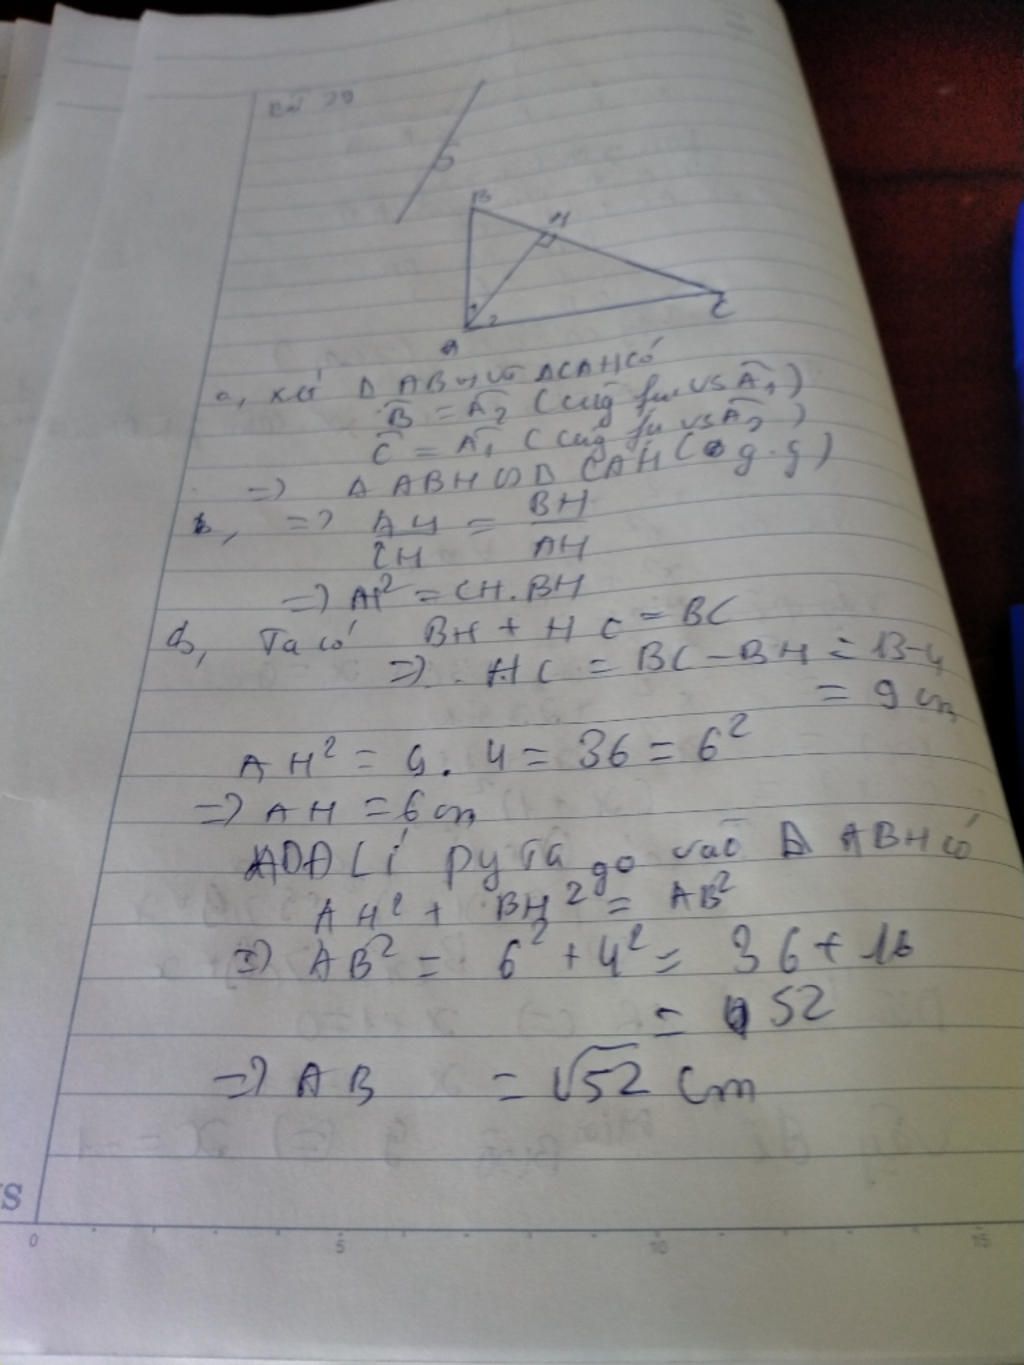 Bài 29
B
H
A
2
C
a, xét Δ ABH và ΔCAH có
B = A2 (cùg fụ vs A1)
C = A1 (cùg fụ vs A2)
=> Δ ABH ∽ Δ CAH (g.g)
b, => AH/CH = BH/AH
=> AH² = CH.BH
Ta có BH + HC = BC
=> HC = BC - BH = 13-4
= 9 cm
AH² = 9 . 4 = 36 = 6²
=> AH = 6 cm
ADĐLí pyTa go vào Δ ABH có
AH² + BH² = AB²
=> AB² = 6² + 4² = 36 + 16
= 52
=> AB = √52 cm
S
0 5 10 15